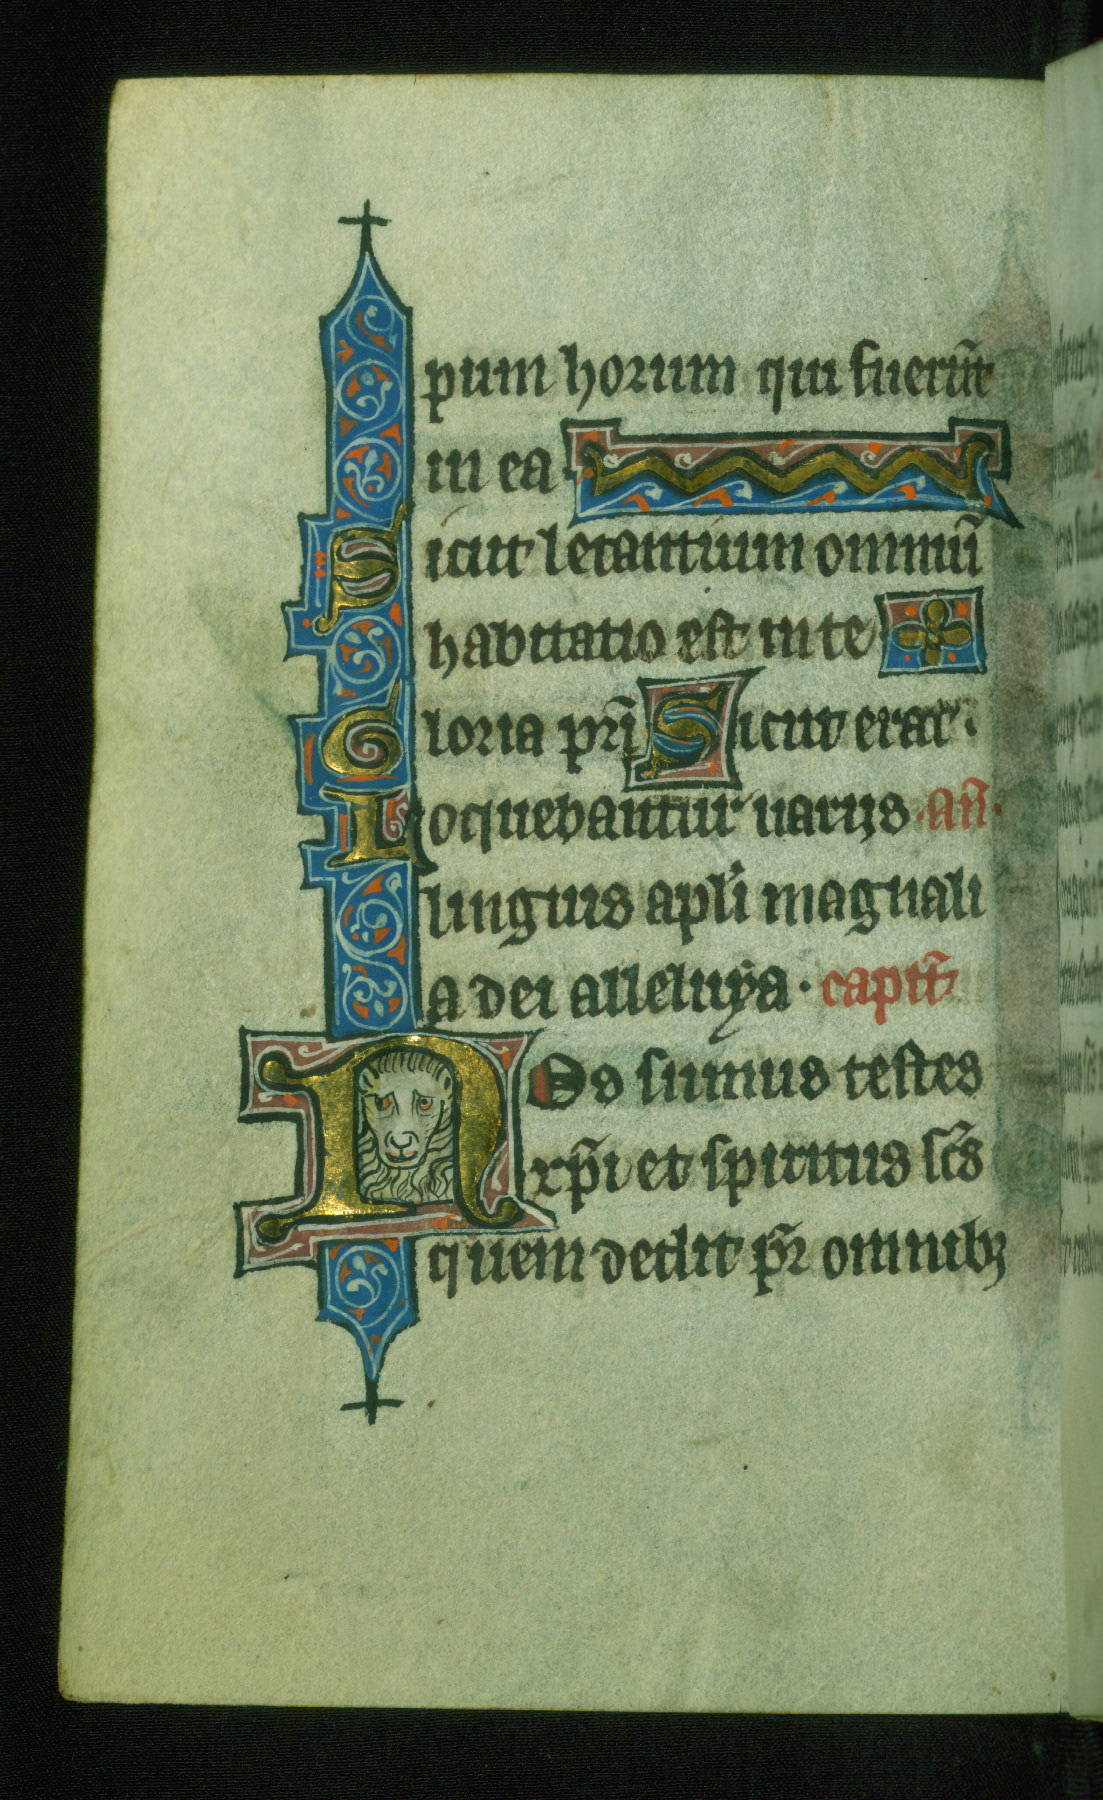 pum horum qui fuerūt
in ea
Sicut letantium omniū
habitatio est in te
Gloria pr̄i Sicut erat.
Loquebantur uarijs .an̄.
linguis apl̄i magnali
a dei alleluya. capit̄
NOs sumus testes
xp̄i et spiritus sc̄s
quem dedit pr̄ omnibꝫ